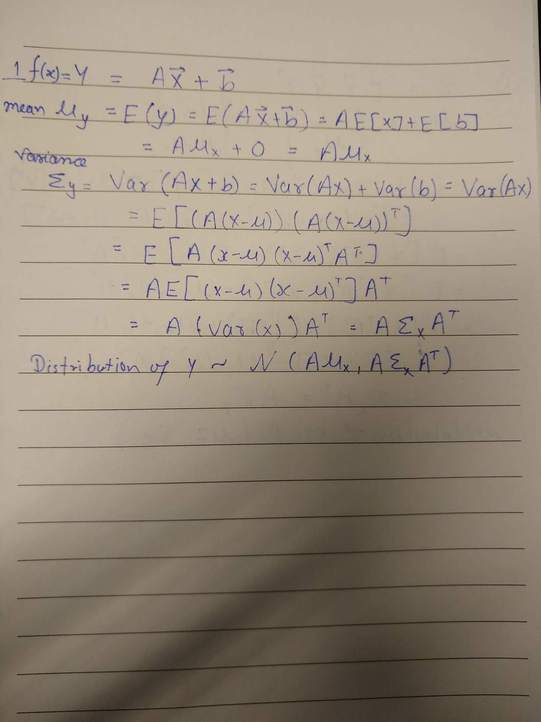 1 f(x)=Y = Ax⃗ + b⃗
mean μ_y = E(y) = E(Ax⃗+b⃗) = AE[x]+E[b]
= Aμ_x + 0 = Aμ_x
Variance
Σ_y = Var (Ax+b) = Var(Ax)+Var(b) = Var(Ax)
= E[(A(x-μ)) (A(x-μ))^T]
= E[A(x-μ)(x-μ)^T A^T]
= AE[(x-μ)(x-μ)^T]A^T
= A(Var(x))A^T = AΣ_x A^T
Distribution of Y ~ N(Aμ_x, AΣ_x A^T)